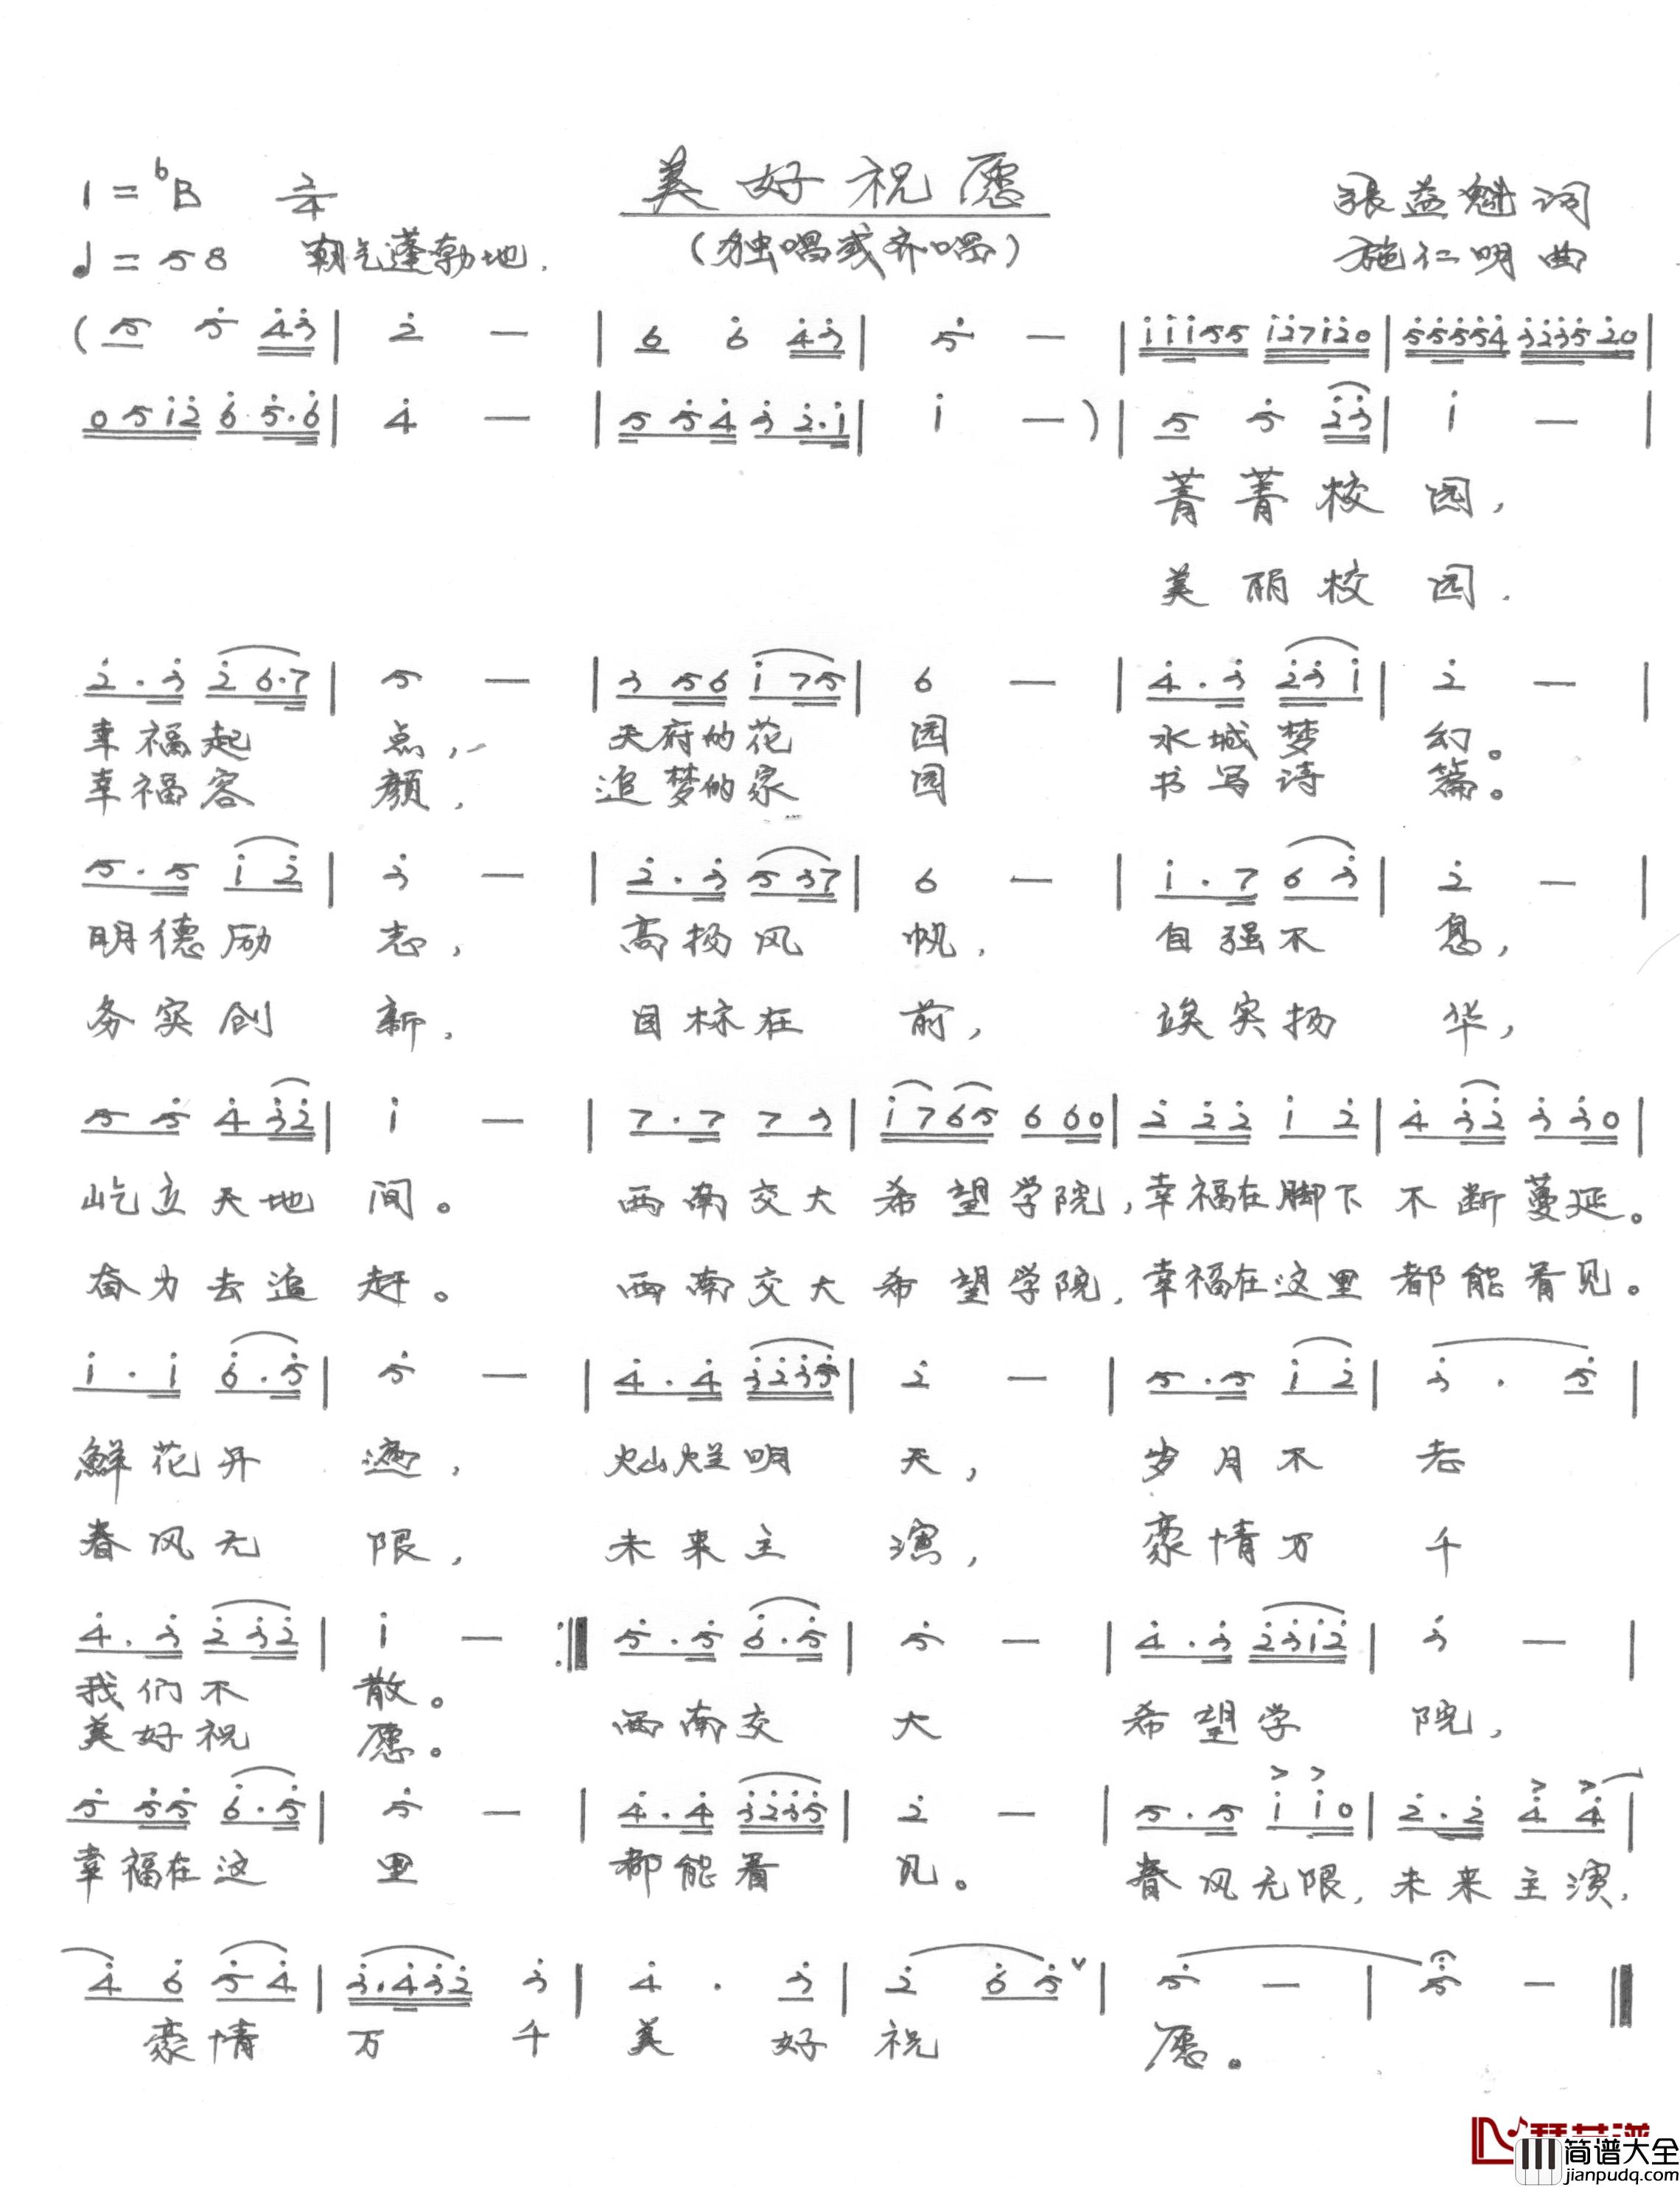 美好祝愿
1=♭B 2/4 张益魁词
(独唱或齐唱)
♩=58 朝气蓬勃地. 施仁明曲
(5 5̇ 4̇3̇ | 2̇ — | 6 6̇ 4̇3̇ | 5̇ — | i̇i̇i̇55 i̇2̇7i̇2̇0 | 5̇5̇5̇5̇4̇ 3̇2̇3̇5̇2̇0 |
05i̇2̇ 6̇·5̇·6̇ | 4̇ — | 5 5̇4̇ 3̇ 2̇·i̇ | i̇ — ) | 5 5̇ 2̇3̇ | i̇ — |
菁菁校园,
美丽校园.
2̇·3̇ 2̇6·7 | 5 — | 3 56 i̇75 | 6 — | 4̇·3̇ 2̇3̇i̇ | 2̇ — |
幸福起点, 天府的花园 水城梦幻。
幸福容颜, 追梦的家园 书写诗篇。
5·5 i̇2̇ | 3̇ — | 2̇·3̇ 537 | 6 — | i̇·7 63̇ | 2̇ — |
明德励志, 高扬风帆, 自强不息,
务实创新, 目标在前, 竢实扬华,
5 5̇ 4̇3̇2̇ | i̇ — | 7·7 73 | i̇765 660 | 2̇ 2̇2̇ i̇ 2̇ | 4̇ 3̇2̇ 3̇3̇0 |
屹立天地间。 西南交大希望学院,幸福在脚下不断蔓延。
奋力去追赶。 西南交大希望学院,幸福在这里都能看见。
i̇·i̇ 6̇·5̇ | 5̇ — | 4̇·4̇ 3̇2̇3̇5̇ | 2̇ — | 5·5 i̇2̇ | 3̇· 5̇ |
鲜花开遍, 灿烂明天, 岁月不老
春风无限, 未来主演, 豪情万千
4̇·3̇ 2̇3̇2̇ | i̇ — :‖ 5̇·5̇ 6̇·5̇ | 5̇ — | 4̇·3̇ 2̇3̇i̇2̇ | 3̇ — |
我们不散。
美好祝愿。 西南交大 希望学院,
5̇ 5̇5̇ 6̇·5̇ | 5̇ — | 4̇·4̇ 3̇2̇3̇5̇ | 2̇ — | 5·5 i̇ i̇0 | 2̇·2̇ 4̇ 4̇ |
幸福在这里 都能看见。 春风无限,未来主演,
4̇ 6̇ 5̇4̇ | 3̇·4̇3̇2̇ 3̇ | 4̇· 3̇ | 2̇ 6̇5̇ ∨ | 5̇ — | 5̇ — ‖
豪情万千美好祝愿。
琴艺谱
简谱大全
jianpudq.com